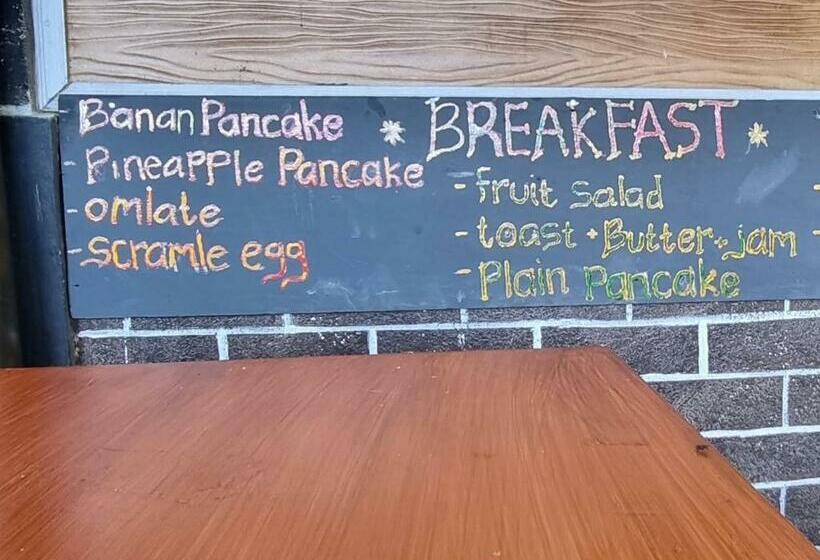 Banan Pancake
- Pineapple Pancake
- omlate
- scramle egg
BREAKFAST
- fruit salad
- toast + Butter + jam
- Plain Pancake